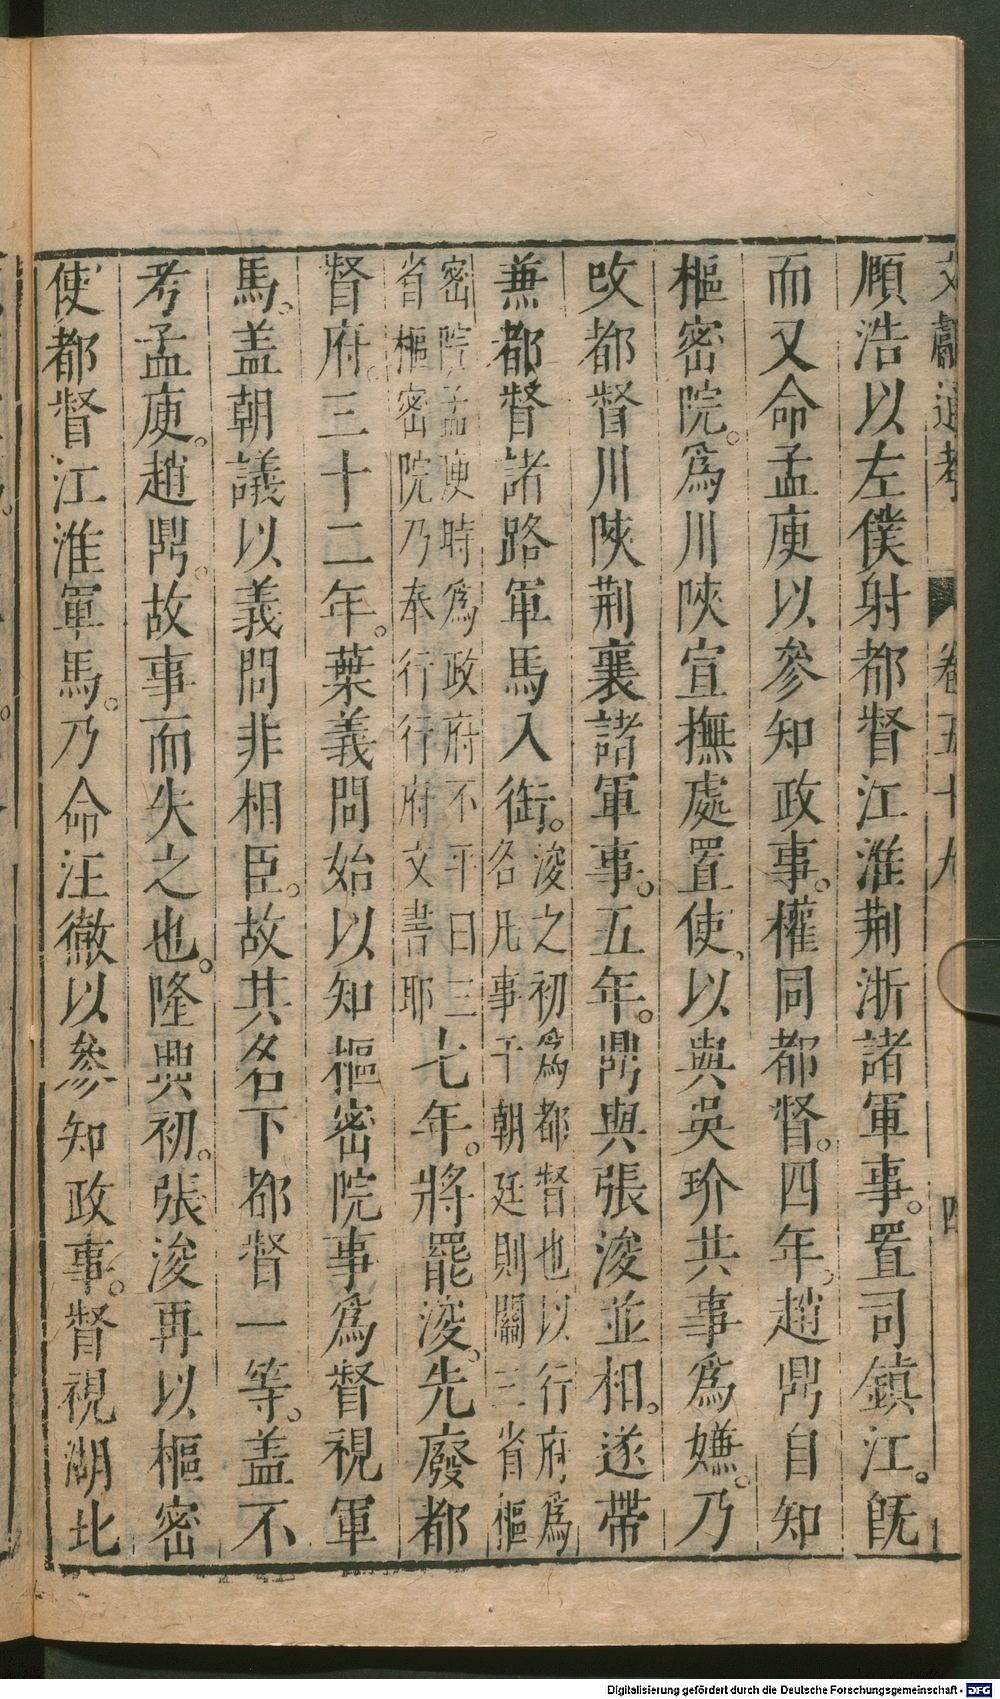 文獻通考 卷五十九 四
頤浩以左僕射都督江淮荆浙諸軍事。置司鎮江。旣
而又命孟庾以參知政事。權同都督。四年、趙鼎自知
樞密院。爲川陜宣撫處置使、以與吳玠共事爲嫌。乃
改都督川陜荆襄諸軍事。五年。鼎與張浚並相。遂帶
兼都督諸路軍馬入銜。浚之初爲都督也以行府爲
名凡事干朝廷則關三省樞
密院孟庾時爲政府不平曰三
省樞密院乃奉行行府文書耶
七年。將罷浚。先廢都
督府。三十二年。葉義問始以知樞密院事爲督視軍
馬。盖朝議以義問非相臣。故其名下都督一等。盖不
考孟庾。趙鼎。故事而失之也。隆興初。張浚再以樞密
使都督江淮軍馬。乃命汪徹以參知政事。督視湖北
Digitalisierung gefördert durch die Deutsche Forschungsgemeinschaft - DFG